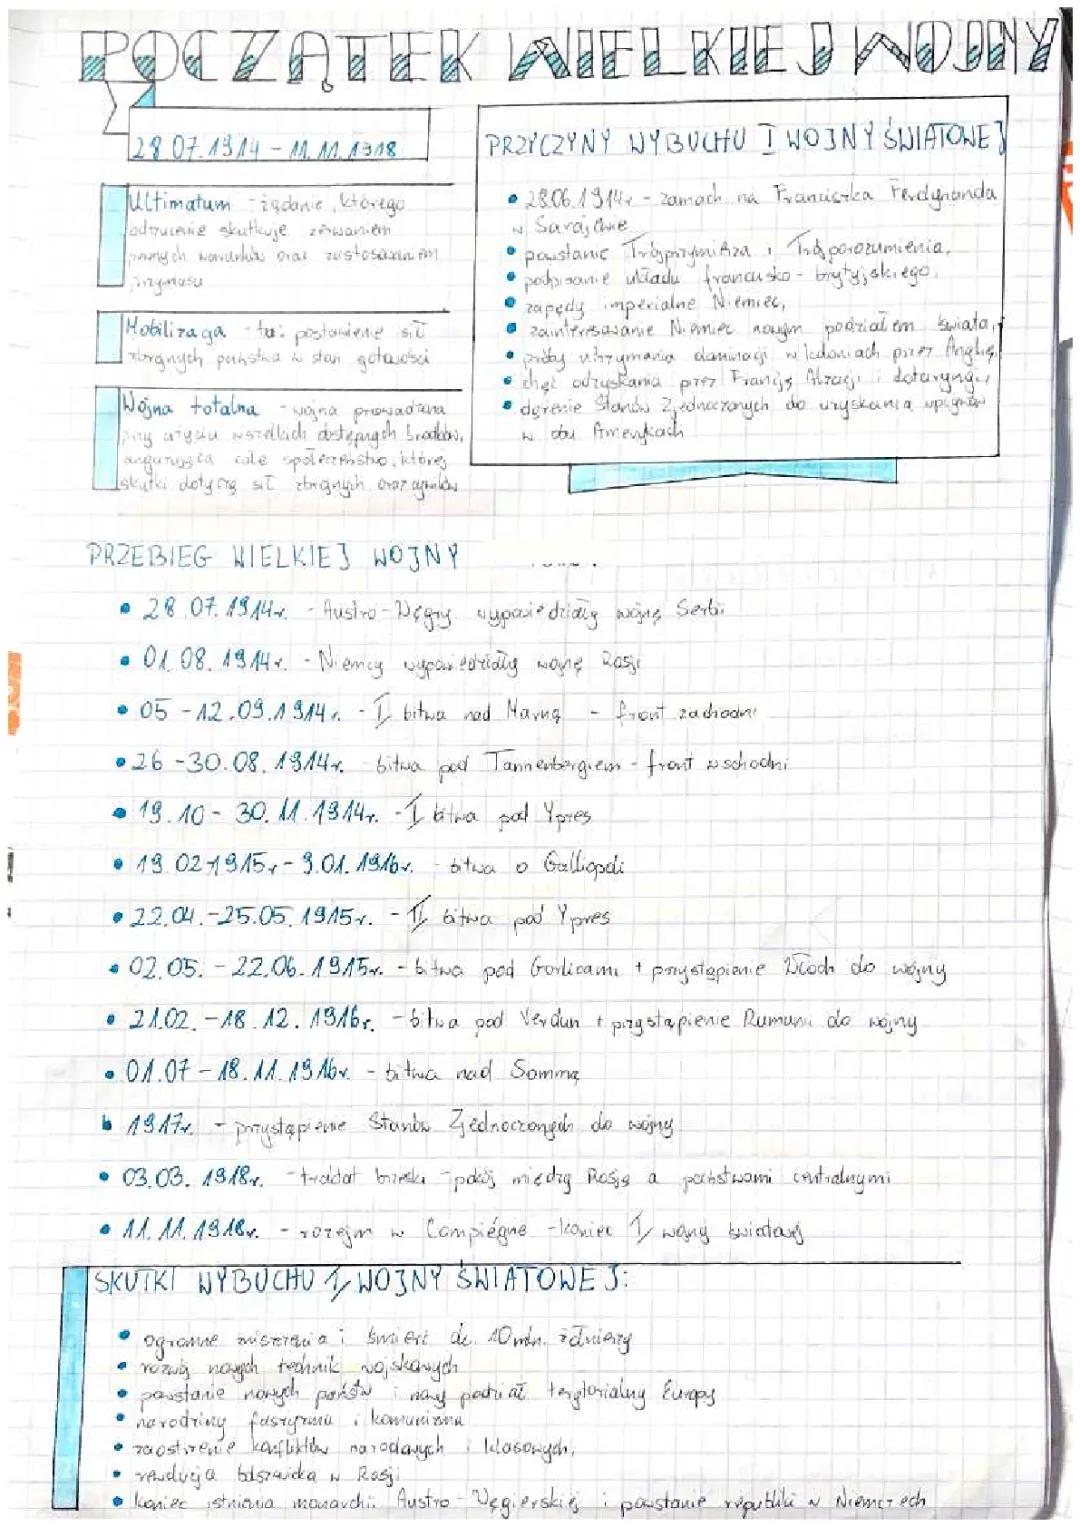 POCZĄTEK WIELKIEJ WOJNY
28.07.1914 - 11.11.1918
Ultimatum - żądanie, którego
odrzucenie skutkuje zerwaniem
pewnych warunków oraz zastosowaniem
przymusu
Mobilizacja - tu: postawienie sił
zbrojnych państwa w stan gotowości
Wojna totalna - wojna prowadzona
przy użyciu wszelkich dostępnych środków,
angażująca całe społeczeństwo, której
skutki dotyczą sił zbrojnych oraz cywilów
PRZYCZYNY WYBUCHU I WOJNY ŚWIATOWEJ
• 28.06.1914r - zamach na Franciszka Ferdynanda
w Sarajewie
• powstanie Trójprzymierza i Trójporozumienia,
• podpisanie układu francusko-brytyjskiego,
• zapędy imperialne Niemiec,
• zainteresowanie Niemiec nowym podziałem świata,
• próby utrzymania dominacji w koloniach przez Anglię,
• chęć odzyskania przez Francję Alzacji i Lotaryngii,
• dążenie Stanów Zjednoczonych do uzyskania wpływów
w obu Amerykach
PRZEBIEG WIELKIEJ WOJNY
• 28.07.1914r. - Austro-Węgry wypowiedziały wojnę Serbii
• 01.08.1914r. - Niemcy wypowiedziały wojnę Rosji
• 05-12.09.1914r. - I bitwa nad Marną - front zachodni
• 26-30.08.1914r. bitwa pod Tannenbergiem - front wschodni
• 19.10-30.11.1914r. - I bitwa pod Ypres
• 19.02.1915r - 9.01.1916r. - bitwa o Gallipoli
• 22.04.-25.05.1915r. - II bitwa pod Ypres
• 02.05.-22.06.1915r. - bitwa pod Gorlicami + przystąpienie Włoch do wojny
• 21.02.-18.12.1916r. - bitwa pod Verdun + przystąpienie Rumunii do wojny
• 01.07-18.11.1916r. - bitwa nad Sommą
• 1917r. - przystąpienie Stanów Zjednoczonych do wojny
• 03.03.1918r. - traktat brzeski - pokój między Rosją a państwami centralnymi
• 11.11.1918r. - rozejm w Compiégne - koniec I wojny światowej
SKUTKI WYBUCHU I WOJNY ŚWIATOWEJ:
• ogromne zniszczenia i śmierć ok. 10 mln. żołnierzy
• rozwój nowych technik wojskowych
• powstanie nowych państw i nowy podział terytorialny Europy
• narodziny faszyzmu i komunizmu
• zaostrzenie konfliktów narodowych i klasowych,
• rewolucja bolszewicka w Rosji
• koniec istnienia monarchii Austro-Węgierskiej i powstanie republiki w Niemczech